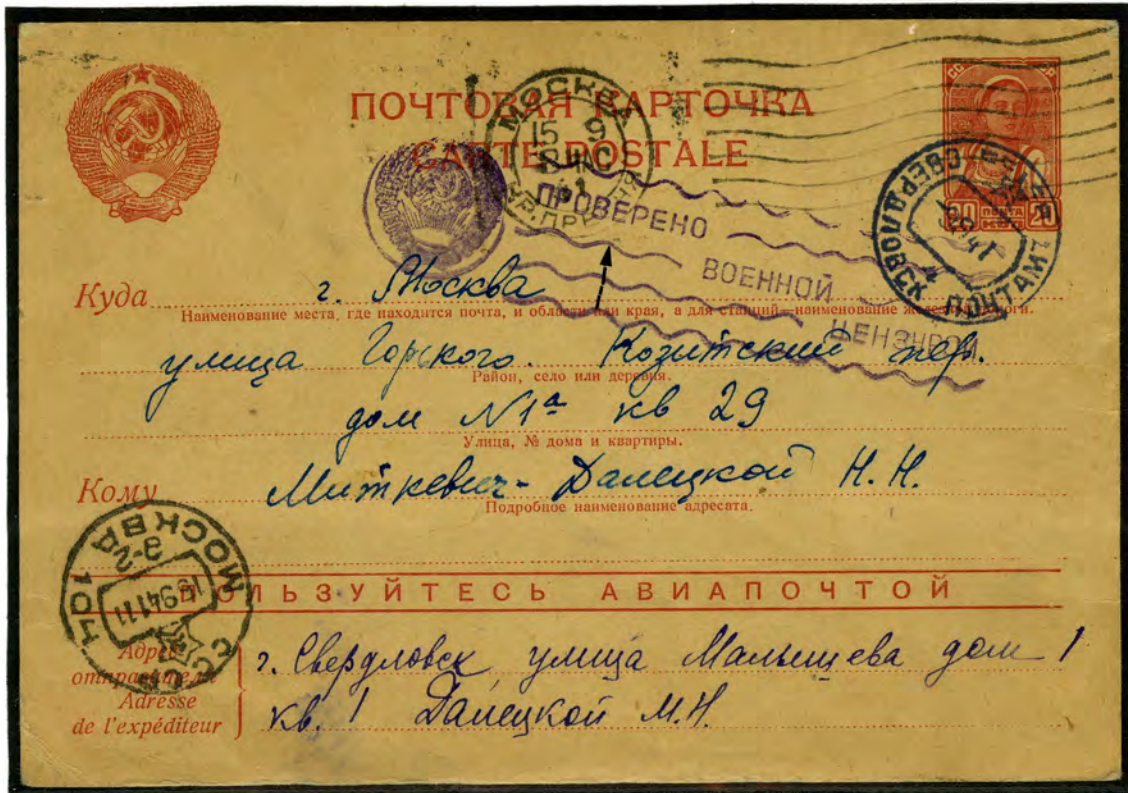 ПОЧТОВАЯ КАРТОЧКА
CARTE POSTALE
МОСКВА
15 9
41
ПРОВЕРЕНО
ВОЕННОЙ
ЦЕНЗУРОЙ
СВЕРДЛОВСК ПОЧТАМТ
20 ПОЧТА 20
КОП
Куда г. Москва
Наименование места, где находится почта, и области или края, а для станций—наименование железной дороги.
улица Горького. Козитский пер.
Район, село или деревня.
дом №1а кв 29
Улица, № дома и квартиры.
Кому Миткевич-Далецкой Н.Н.
Подробное наименование адресата.
МОСКВА
ПОЛЬЗУЙТЕСЬ АВИАПОЧТОЙ
Адрес
отправителя
Adresse
de l'expéditeur
г. Свердловск улица Малышева дом 1
кв. 1 Далецкой М.Н.